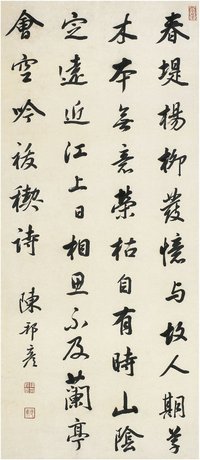 春堤楊柳發憶与故人期草
木本無意榮枯自有時山陰
定遠近江上日相思不及蘭亭
會空吟祓禊詩
陳邦彦